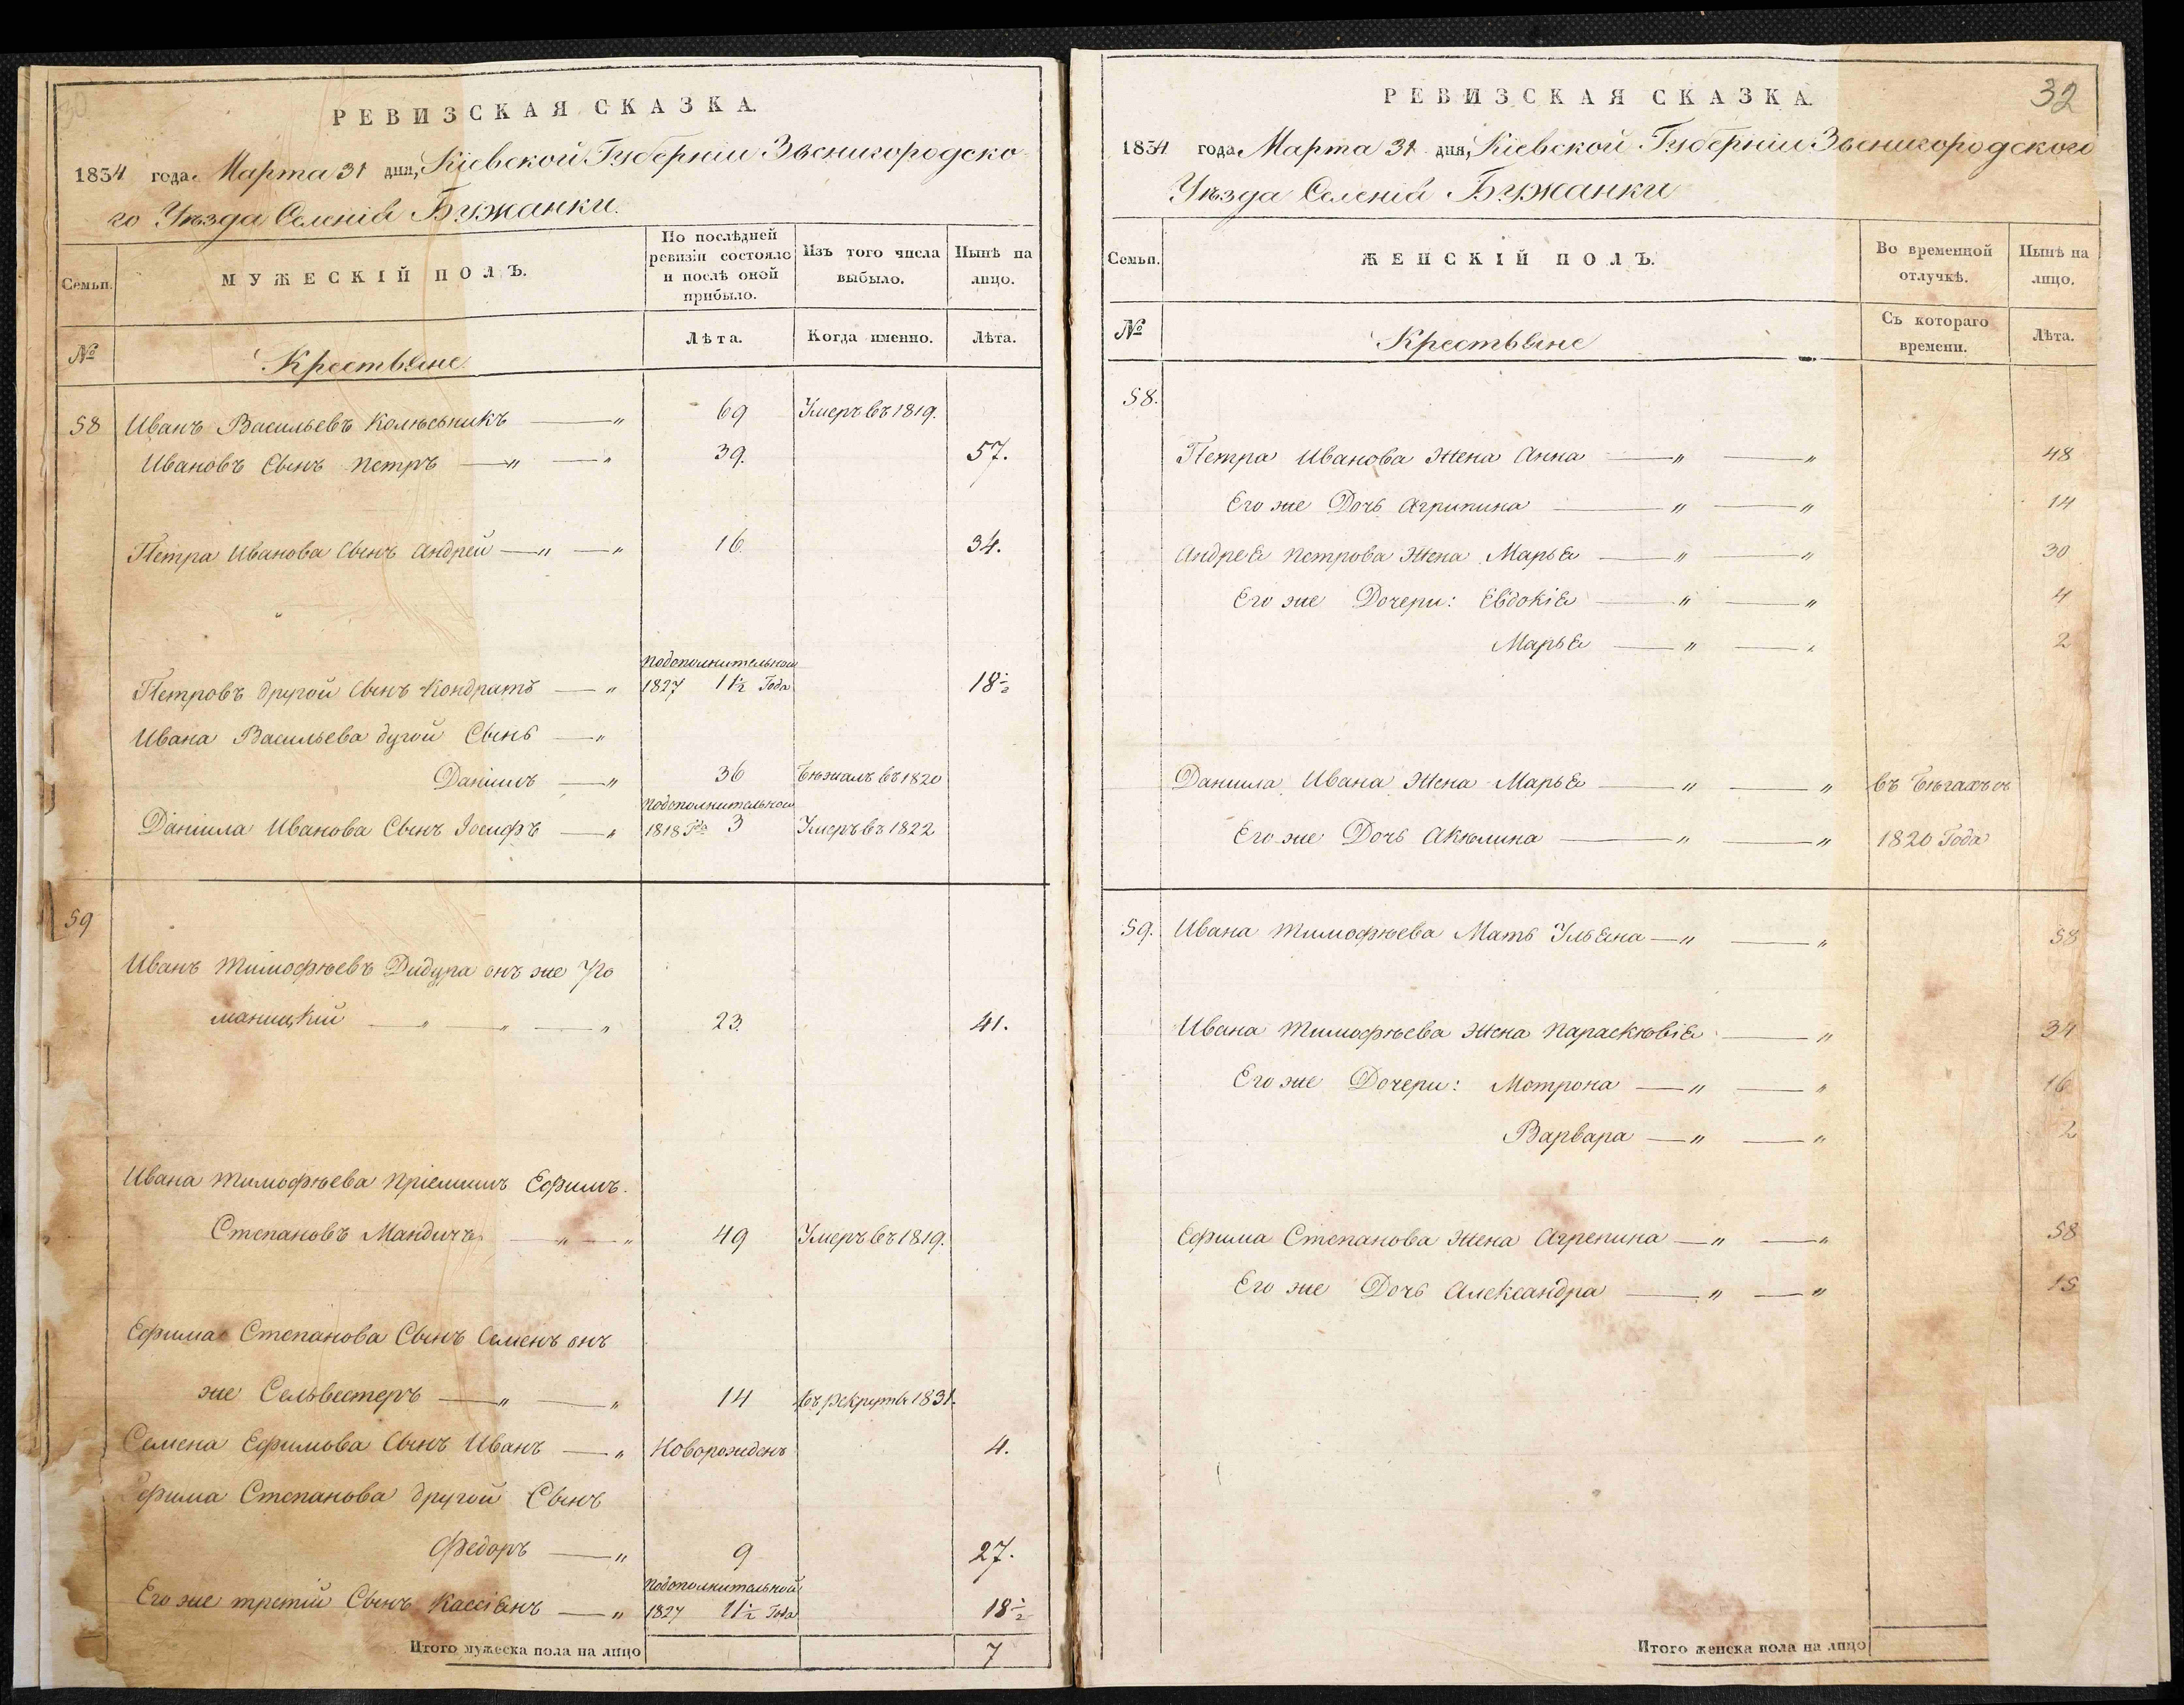 РЕВИЗСКАЯ СКАЗКА.
1834 года Марта 31 дня, Кіевской Губерніи Звенигородско-
го Уѣзда Селенія Бужанки.
Семьи. МУЖЕСКІЙ ПОЛЪ. По послѣдней ревизіи состояло и послѣ оной прибыло. Изъ того числа выбыло. Нынѣ на лицо.
№ Крестьяне Лѣта. Когда именно. Лѣта.
58 Иванъ Васильевъ Колѣсникъ 69 Умеръ въ 1819.
Ивановъ Сынъ Петръ 39. 57.
Петра Иванова Сынъ Андрей 16 34.
Подополнительной
Петровъ другой Сынъ Кондратъ 1827 11½ Года 18½
Ивана Васильева дугой Сынъ
Даніилъ 36 Бѣжалъ въ 1820
Подополнительной
Даніила Иванова Сынъ Іосифъ 1818 Года 3 Умеръ въ 1822
59
Иванъ Тимофѣевъ Дидура онъ же
маницкій 23. 41.
Ивана Тимофѣева Пріемишъ Ефимъ
Степановъ Мандичъ 49 Умеръ въ 1819.
Ефима Степанова Сынъ Семенъ онъ
же Сельвестеръ 14 въ рекруты 1831.
Семена Ефимова Сынъ Иванъ Новорожденъ 4.
Ефима Степанова другой Сынъ
Федоръ 9 27.
Подополнительной
Его же третій Сынъ Кассіянъ 1827 11½ Года 18½
Итого мужеска пола на лицо 7
32
РЕВИЗСКАЯ СКАЗКА.
1834 года Марта 31 дня, Кіевской Губерніи Звенигородского
Уѣзда Селенія Бужанки
Семьи. ЖЕНСКІЙ ПОЛЪ. Во временной отлучкѣ. Нынѣ на лицо.
№ Крестьяне Съ котораго времени. Лѣта.
58.
Петра Иванова Жена Анна 48
Его же Дочь Агрипина 14
Андрея Петрова Жена Марья 30
Его же Дочери: Евдокія 4
Марья 2
Данила Ивана Жена Марья въ Бѣгахъ съ
Его же Дочь Акюлина 1820 Года
59. Ивана Тимофѣева Мать Ульяна 58
Ивана Тимофѣева Жена Параскювія 34
Его же Дочери: Мотрона 16
Варвара 2
Ефима Степанова Жена Агрепина 58
Его же Дочь Александра 15
Итого женска пола на лицо